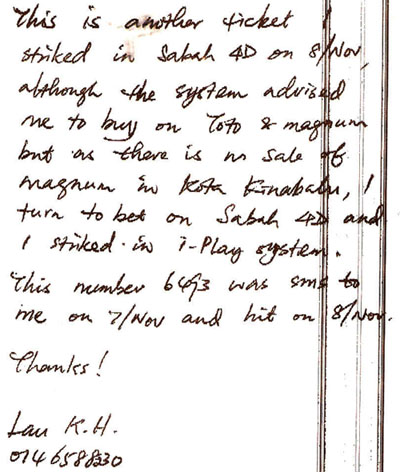 This is another ticket I
striked in Sabah 4D on 8/Nov,
although the system advised
me to buy on Toto & magnum
but as there is no sale of
magnum in Kota Kinabalu, I
turn to bet on Sabah 4D and
I striked in i-Play system.
This number 6493 was sms to
me on 7/Nov and hit on 8/Nov.
Thanks!
Lau K.H.
0146588330